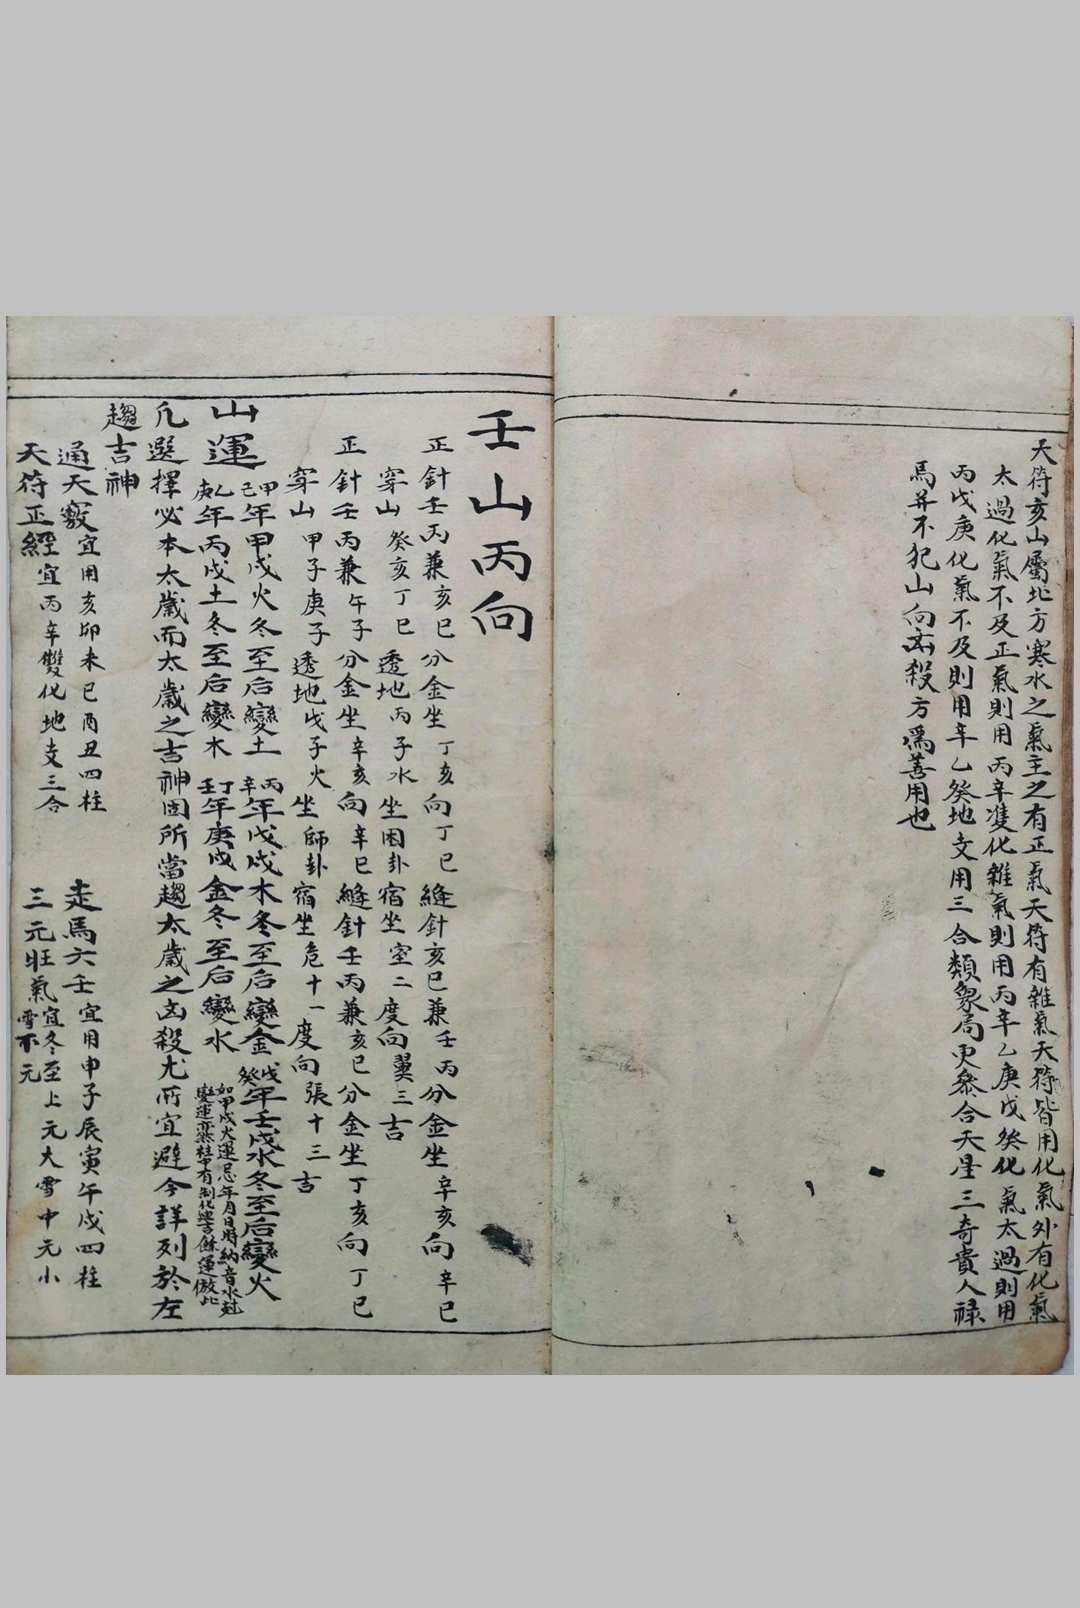 天符亥山屬北方寒水之氣主之有正氣天符有雜氣天符皆用化氣外有化氣
太過化氣不及正氣則用丙辛雙化雜氣則用丙辛乙庚戊癸化氣太過則用
丙戊庚化氣不及則用辛乙癸地支用三合類衆局更叅合天星三奇貴人祿
馬并不犯山向凶殺方爲善用也
壬山丙向
正針壬丙兼亥巳分金坐丁亥向丁巳縫針亥巳兼壬丙分金坐辛亥向辛巳
穿山癸亥丁巳透地丙子水坐困卦宿坐室二度向翼三吉
正針壬丙兼午子分金坐辛亥向辛巳縫針壬丙兼亥巳分金坐丁亥向丁巳
穿山甲子庚子透地戊子火坐師卦宿坐危十一度向張十三吉
山運
甲己年甲戌火冬至后變土丙辛年戊戌木冬至后變金戊癸年壬戌水冬至后變火
乙庚年丙戌土冬至后變木丁壬年庚戌金冬至后變水
如甲戌火運忌年月日時納音水尅
變運亦然柱中有制化進吉餘運倣此
凡選擇必本太歲而太歲之吉神固所當趨太歲之凶殺尤所宜避今詳列於左
趨吉神
通天竅宜用亥卯未巳酉丑四柱 走馬六壬宜用申子辰寅午戌四柱
天符正經宜丙辛雙化地支三合 三元旺氣宜冬至上元大雪中元小
雪下元